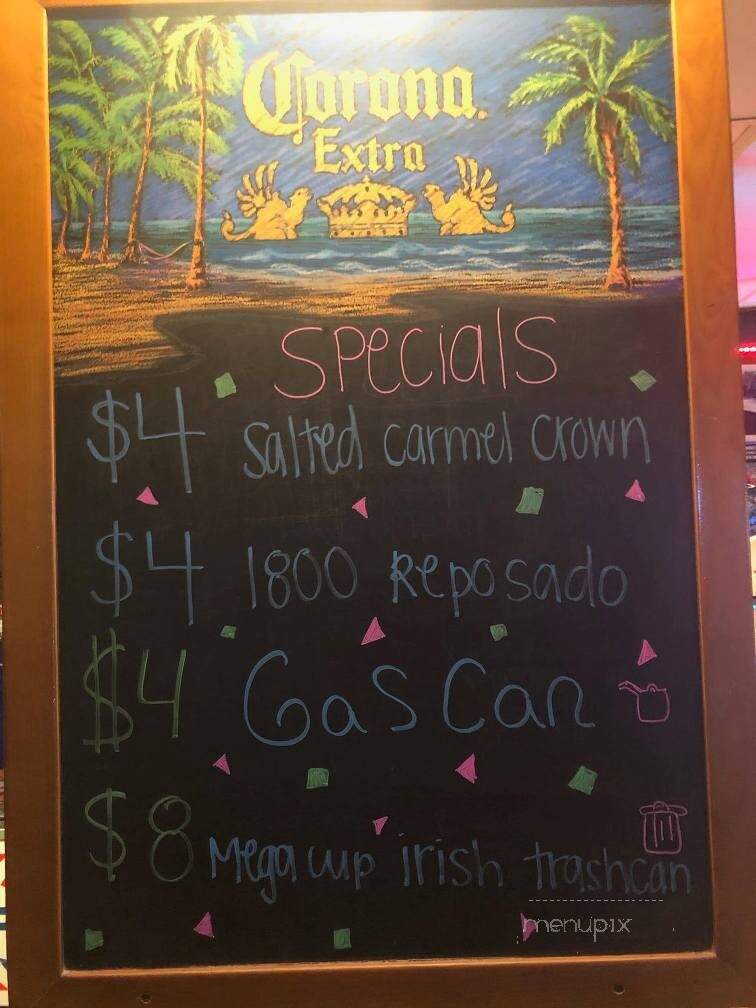 Corona.
Extra
Specials
$4 Salted carmel crown
$4 1800 Reposado
$4 Gas Can
$8 Mega cup irish trashcan
menupix